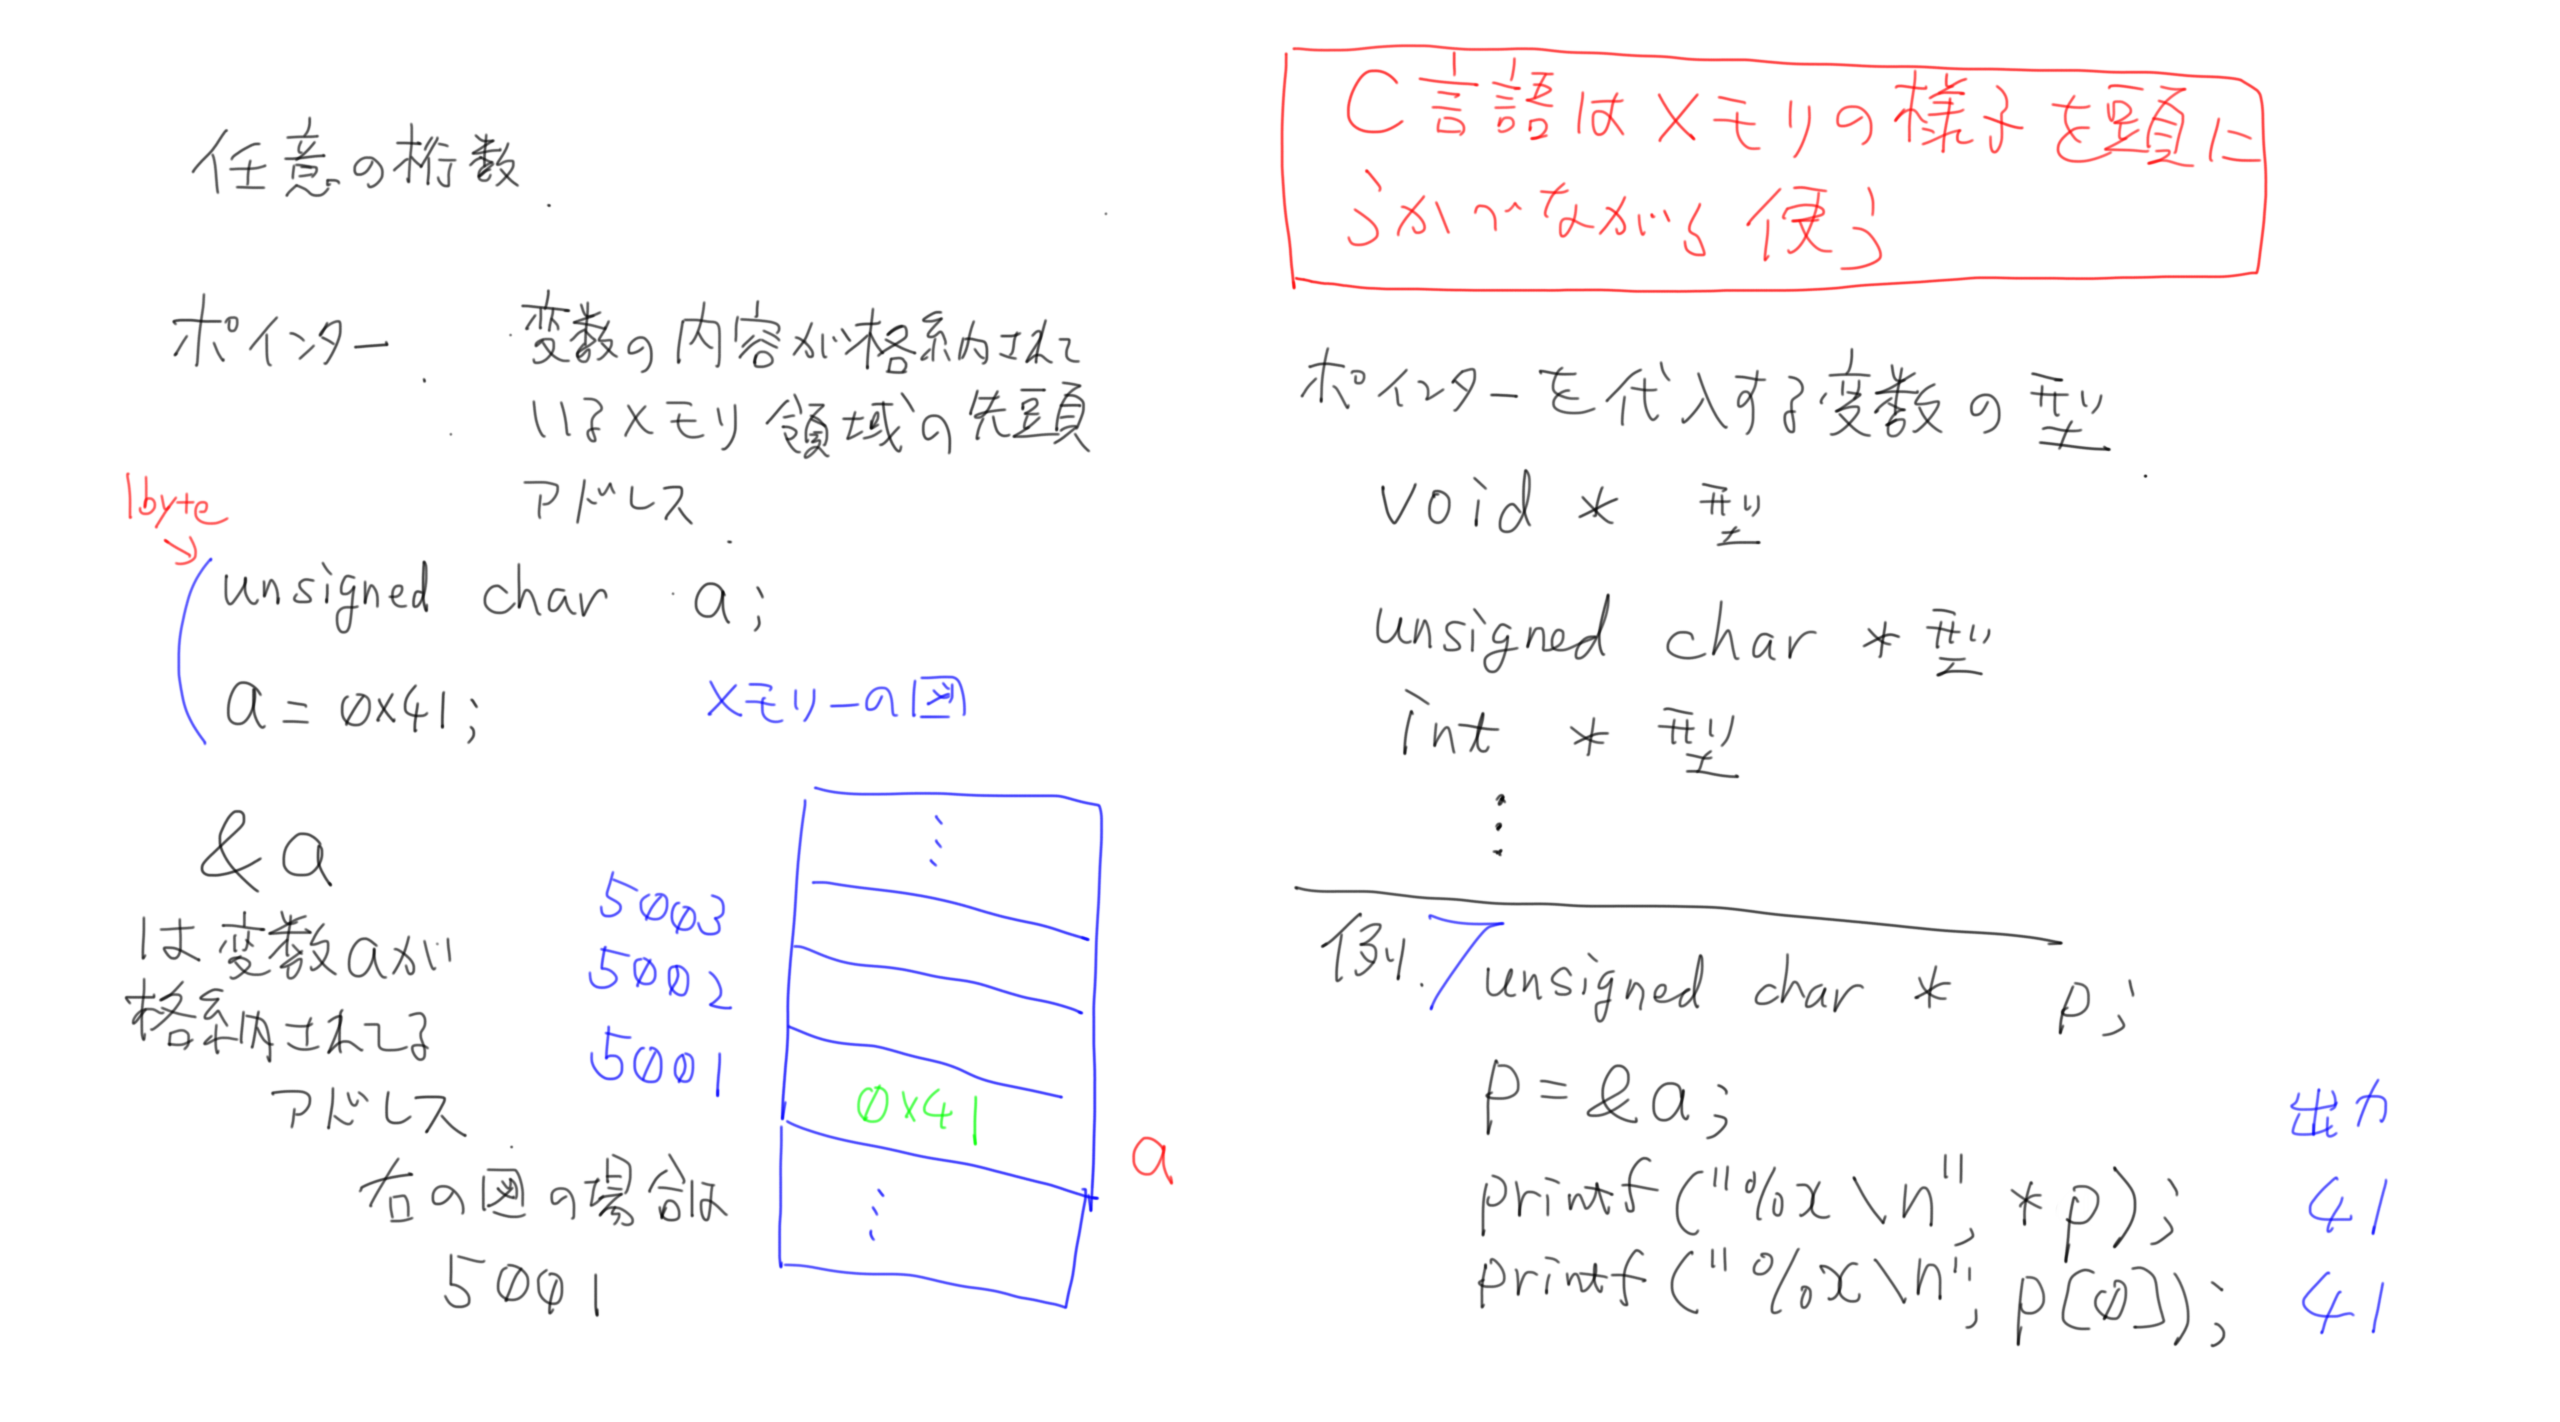 任意の桁数
ポインター 変数の内容が格納されて
いるメモリ領域の先頭
アドレス
1byte
unsigned char a;
a = 0x41;
メモリーの図
&a
は変数aが
格納されてる
アドレス
右の図の場合は
5001
5003
5002
5001
0x41
a
C言語はメモリの様子を頭に
うかべながら使う
ポインターを代入する変数の型
void * 型
unsigned char * 型
int * 型
例. unsigned char * p;
p = &a;
出力
printf("%x\n", *p); 41
printf("%x\n", p[0]); 41